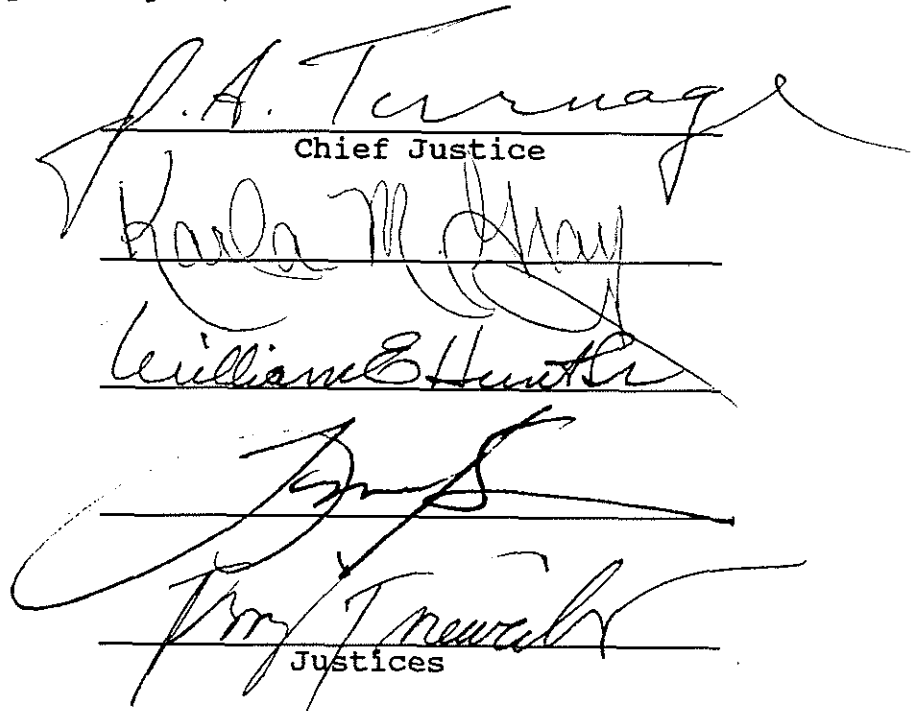 J. A. Turnage
Chief Justice
Karla M. Gray
William E Hunt Sr
Terry Trieweiler
Justices